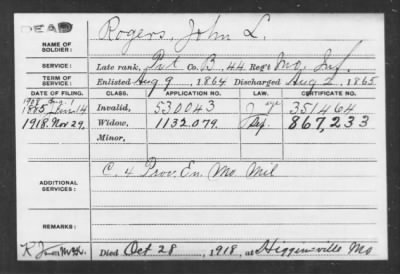 DEAD
Rogers, John L.
NAME OF SOLDIER:
SERVICE: Late rank, Pvt Co. B, 44 Reg't Mo. Inf.
TERM OF SERVICE: Enlisted Aug 9, 1864 Discharged Aug 2, 1865
DATE OF FILING. CLASS. APPLICATION NO. LAW. CERTIFICATE NO.
1885 Invalid, 530043 351464
1918. Nov 29. Widow, 1132.079. 867,233
Minor,
ADDITIONAL SERVICES: C. 4 Prov. En. Mo. Mil
REMARKS:
Died Oct 28, 1918, at Higginsville Mo